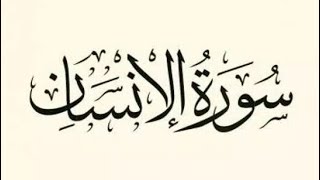 سُورَةُ الإِنسَانِ